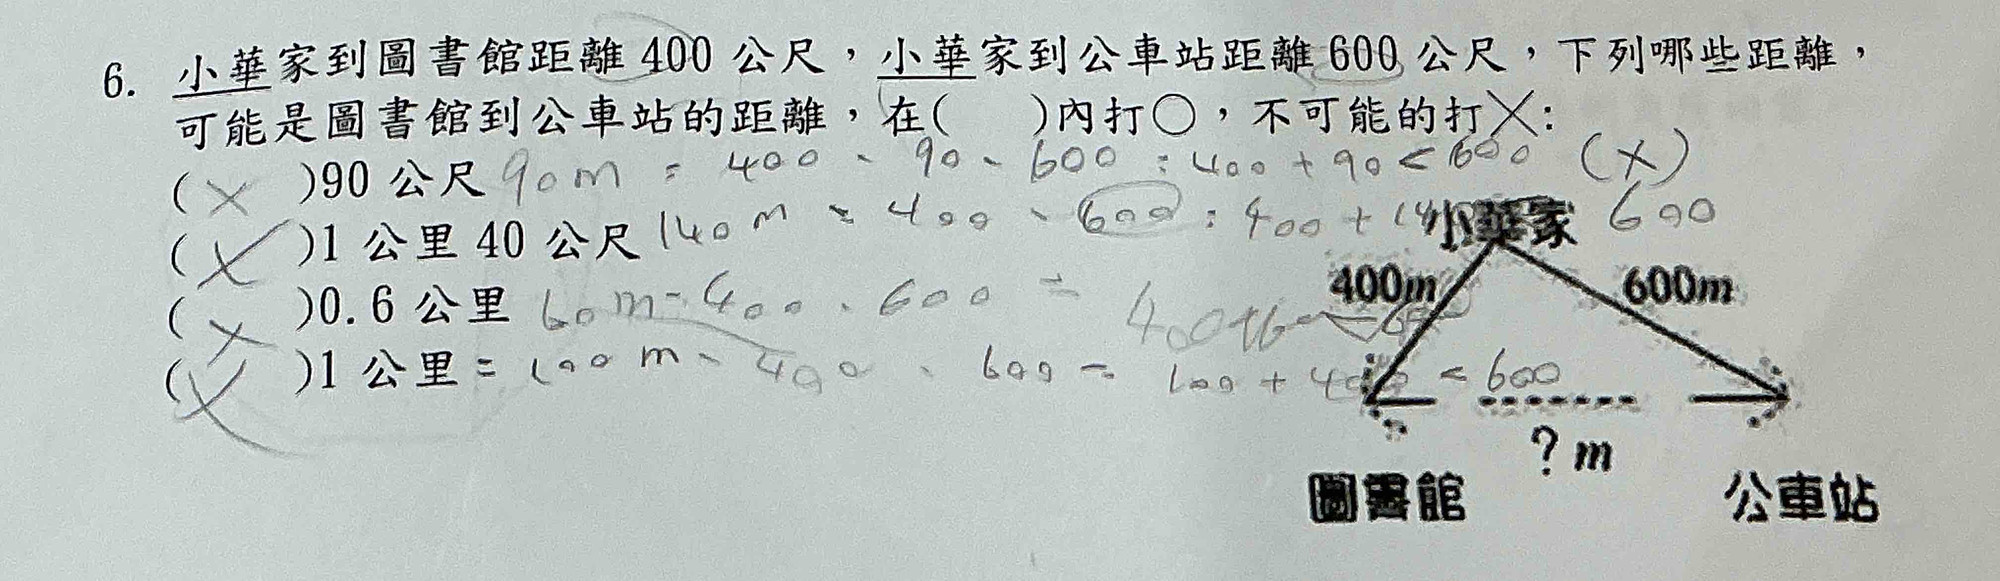 6. 小華家到圖書館距離 400 公尺，小華家到公車站距離 600 公尺，下列哪些距離，
可能是圖書館到公車站的距離，在(　)內打○，不可能的打╳：
( × )90 公尺 90m = 400、90、600：400 + 90 < 600 (×)
( × )1 公里 40 公尺 140m、400、600：400 + 14 600
小華家
( × )0.6 公里 60m、400、600 = 400+60 <
400m 600m
( × )1 公里 = 100m、400、600 = 100 + 400 < 600
? m
圖書館 公車站